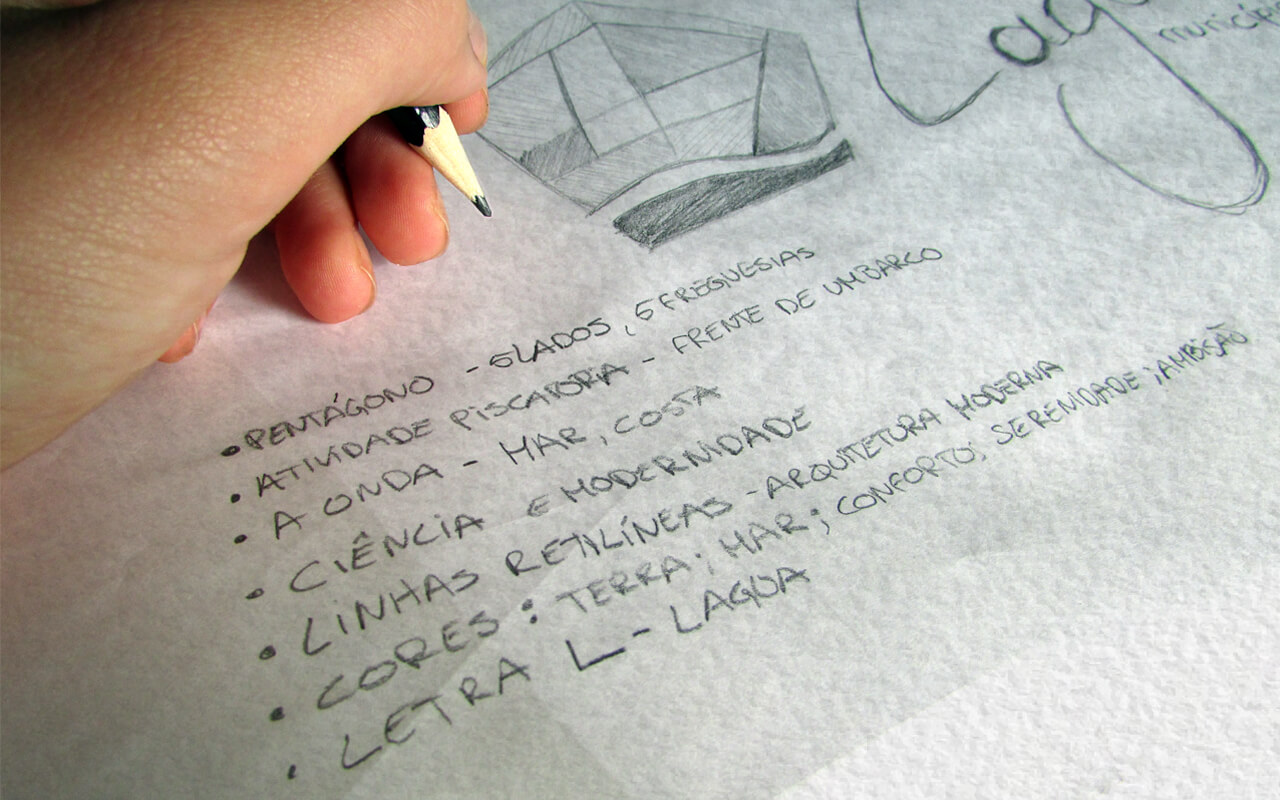 Lago
municípi
• PENTÁGONO - 5 LADOS, 5 FREGUESIAS
• ATIVIDADE PISCATORIA - FRENTE DE UM BARCO
• A ONDA - MAR, COSTA
• CIÊNCIA E MODERNIDADE
• LINHAS RETILÍNEAS - ARQUITETURA MODERNA
• CORES : TERRA; MAR; CONFORTO; SERENIDADE; AMBIÇÃO
• LETRA L - LAGOA